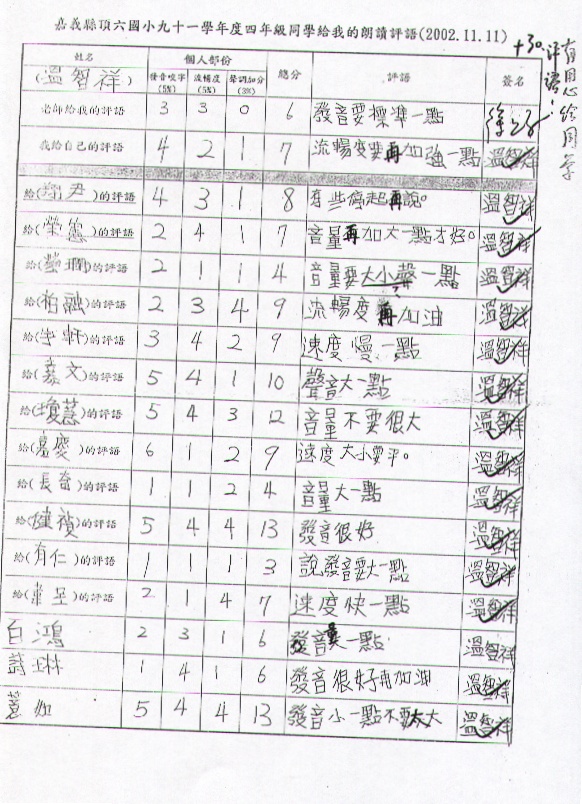 嘉義縣頂六國小九十一學年度四年級同學給我的朗讀評語(2002.11.11)
+30 評語: 有用心給同學
姓名 個人部份 總分 評語 簽名
(溫智祥) 發音咬字(5%) 流暢度(5%) 聲調加分(3%)
老師給我的評語 3 3 0 6 發音要標準一點
我給自己的評語 4 2 1 7 流暢度要再加強一點 溫智祥
給(翔尹)的評語 4 3 1 8 有些停起再說。 溫智祥
給(榮德)的評語 2 4 1 7 音量再加大一點才好。 溫智祥
給( )的評語 2 1 1 4 音量要大小聲一點 溫智祥
給(柏融)的評語 2 3 4 9 流暢度再加油 溫智祥
給(宇軒)的評語 3 4 2 9 速度慢一點 溫智祥
給(嘉文)的評語 5 4 1 10 聲音大一點 溫智祥
給(瓊慧)的評語 5 4 3 12 音量不要很大 溫智祥
給(嘉慶)的評語 6 1 2 9 速度大小要平。 溫智祥
給(長奇)的評語 1 1 2 4 音量大一點 溫智祥
給( )的評語 5 4 4 13 發音很好 溫智祥
給(有仁)的評語 1 1 1 3 說發音要大一點 溫智祥
給( 呈)的評語 2 1 4 7 速度快一點 溫智祥
白鴻 2 3 1 6 發音 一點 溫智祥
詩琳 1 4 1 6 發音很好再加油 溫智祥
蕙如 5 4 4 13 發音小一點不要太大 溫智祥